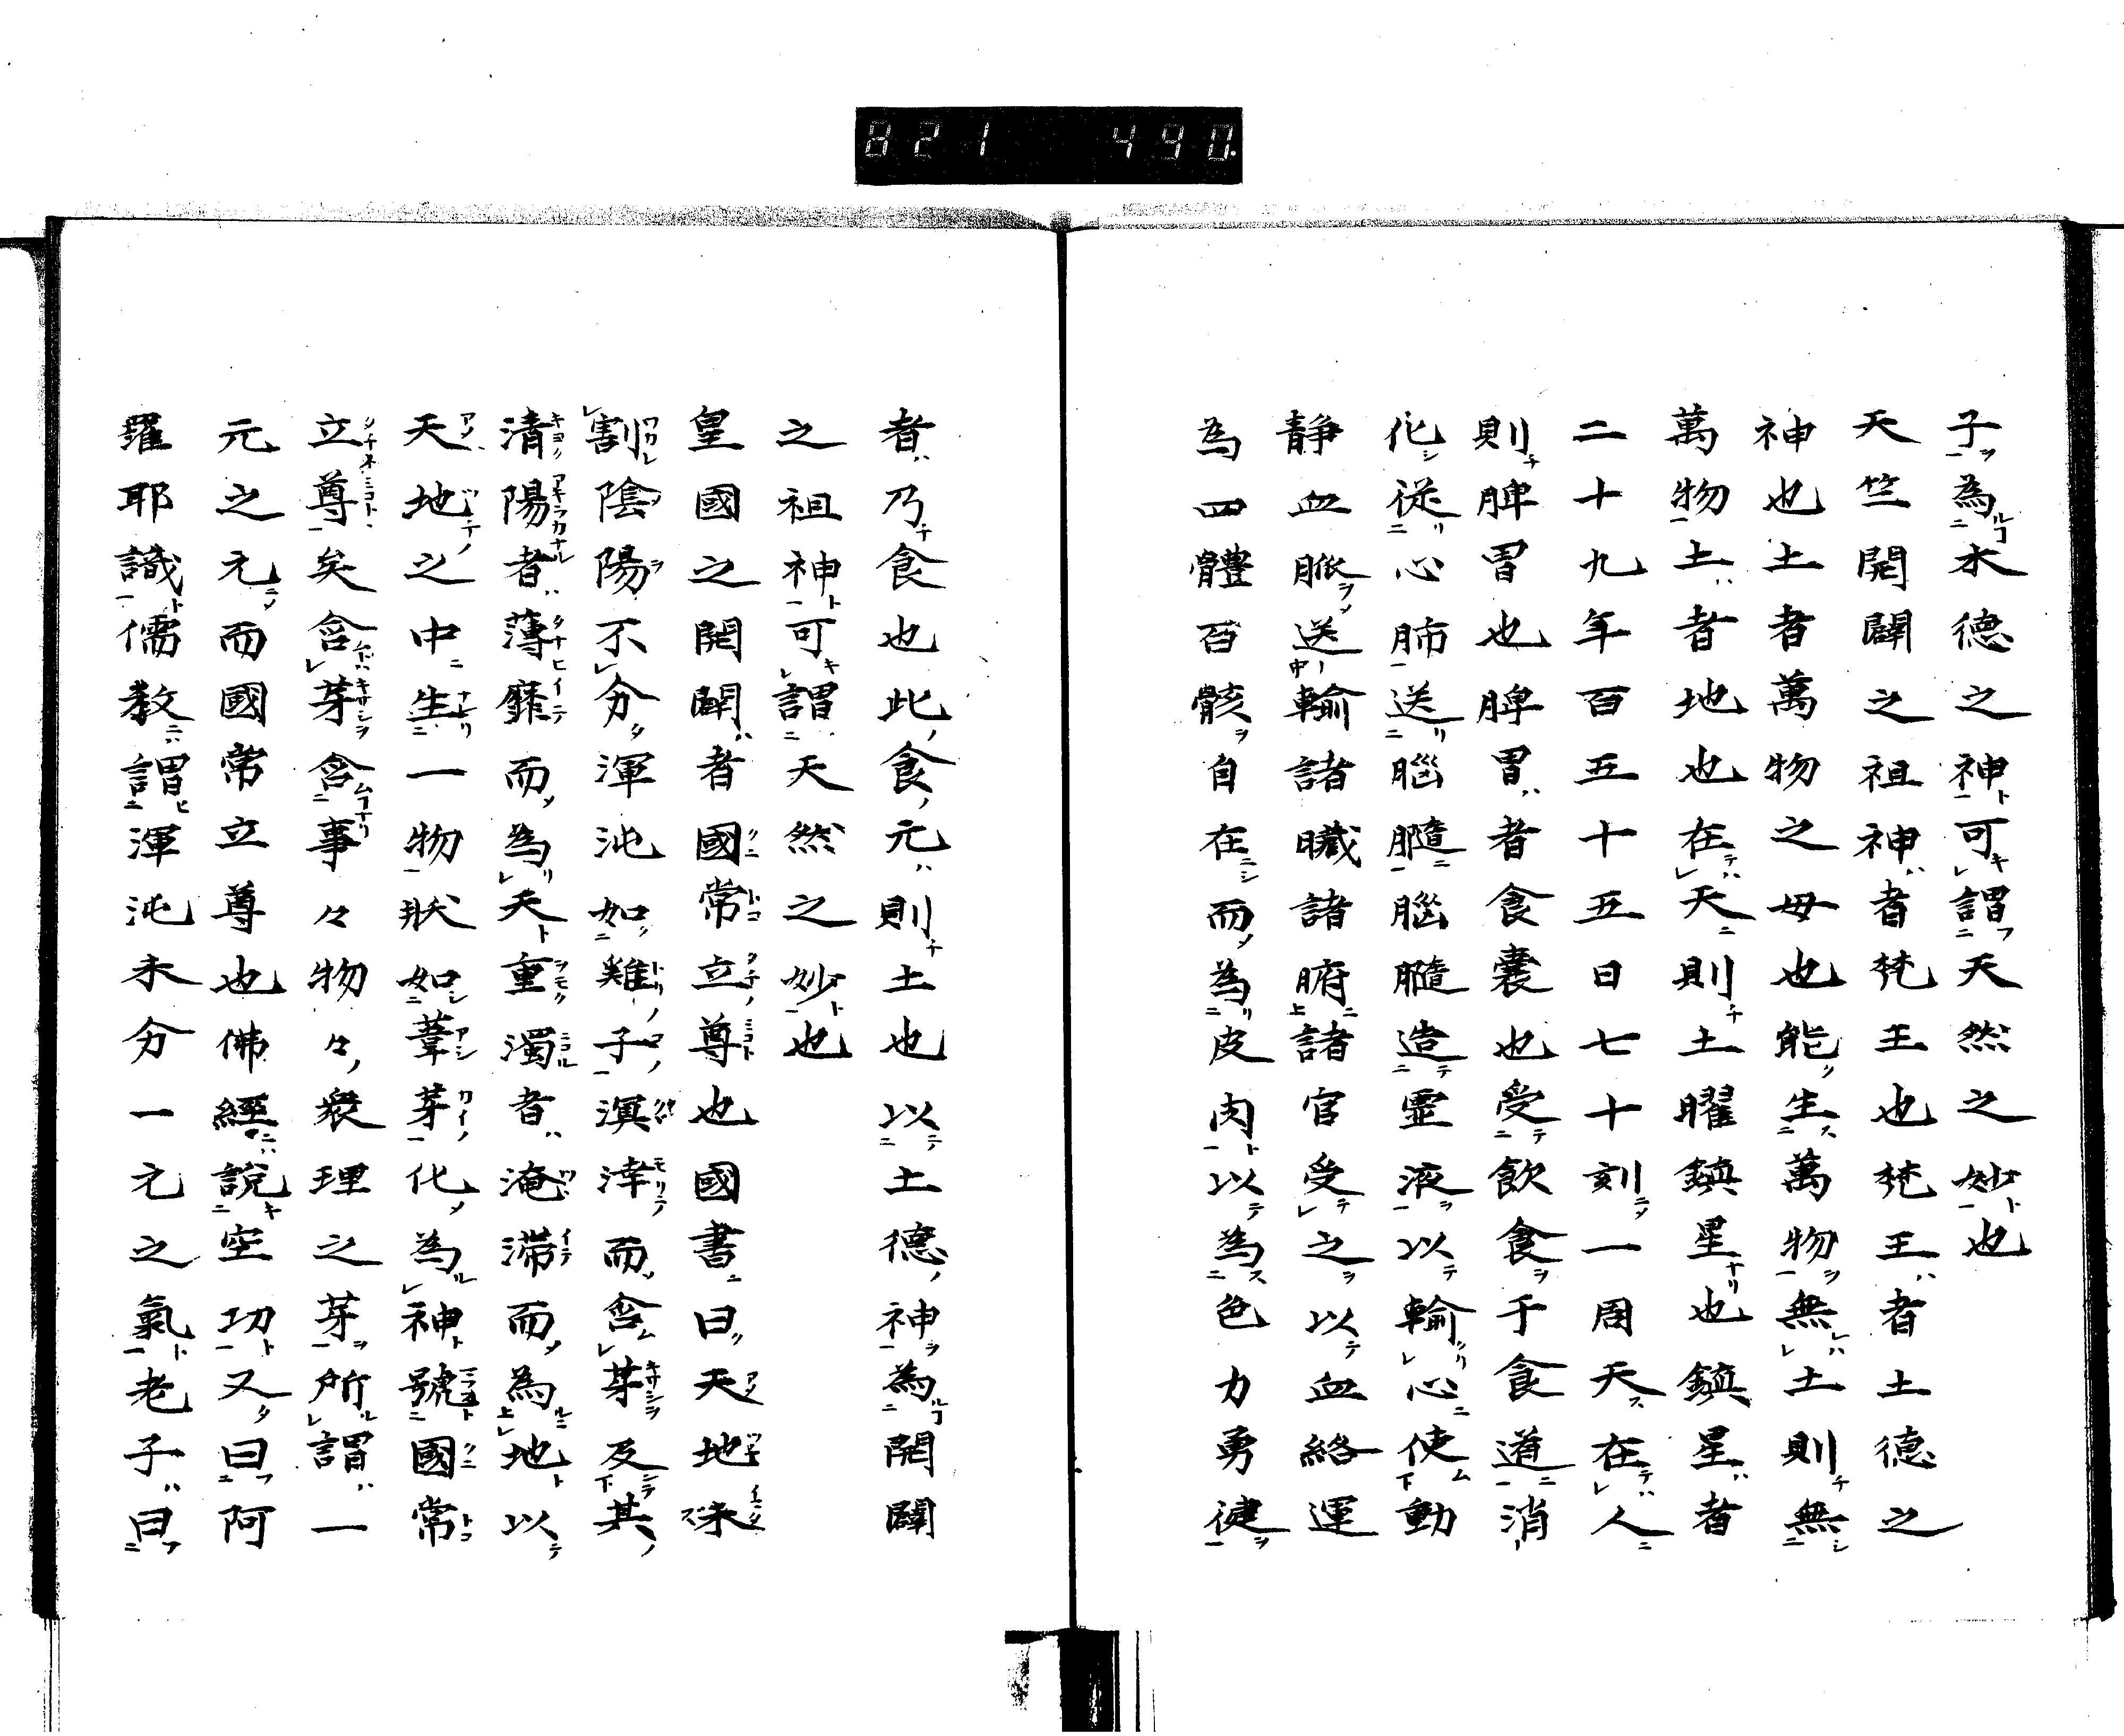 821 490.
子為水德之神可謂天然之妙也
天竺開闢之祖神者梵王也梵王者土德之
神也土者萬物之母也能生萬物無土則無
萬物土者地也在天則土曜鎮星也鎮星者
二十九年百五十五日七十刻一周天在人
則脾胃也脾胃者食囊也受飲食于食道消
化從心肺送腦髓腦髓造靈液以輸心使動
靜血脈送輸諸臓諸腑諸官受之以血絡運
為四體百骸自在而為皮肉以為色力勇健
者乃食也此食元則土也以土德神為開闢
之祖神可謂天然之妙也
皇國之開闢者國常立尊也國書曰天地未
割陰陽不分渾沌如雞子溟涬而含芽及其
清陽者薄靡而為天重濁者淹滯而為地以
天地之中生一物狀如葦芽化為神號國常
立尊矣含芽含事々物々衆理之芽所謂一
元之元而國常立尊也佛經說空功又曰阿
羅耶識儒教謂渾沌未分一元之氣老子曰